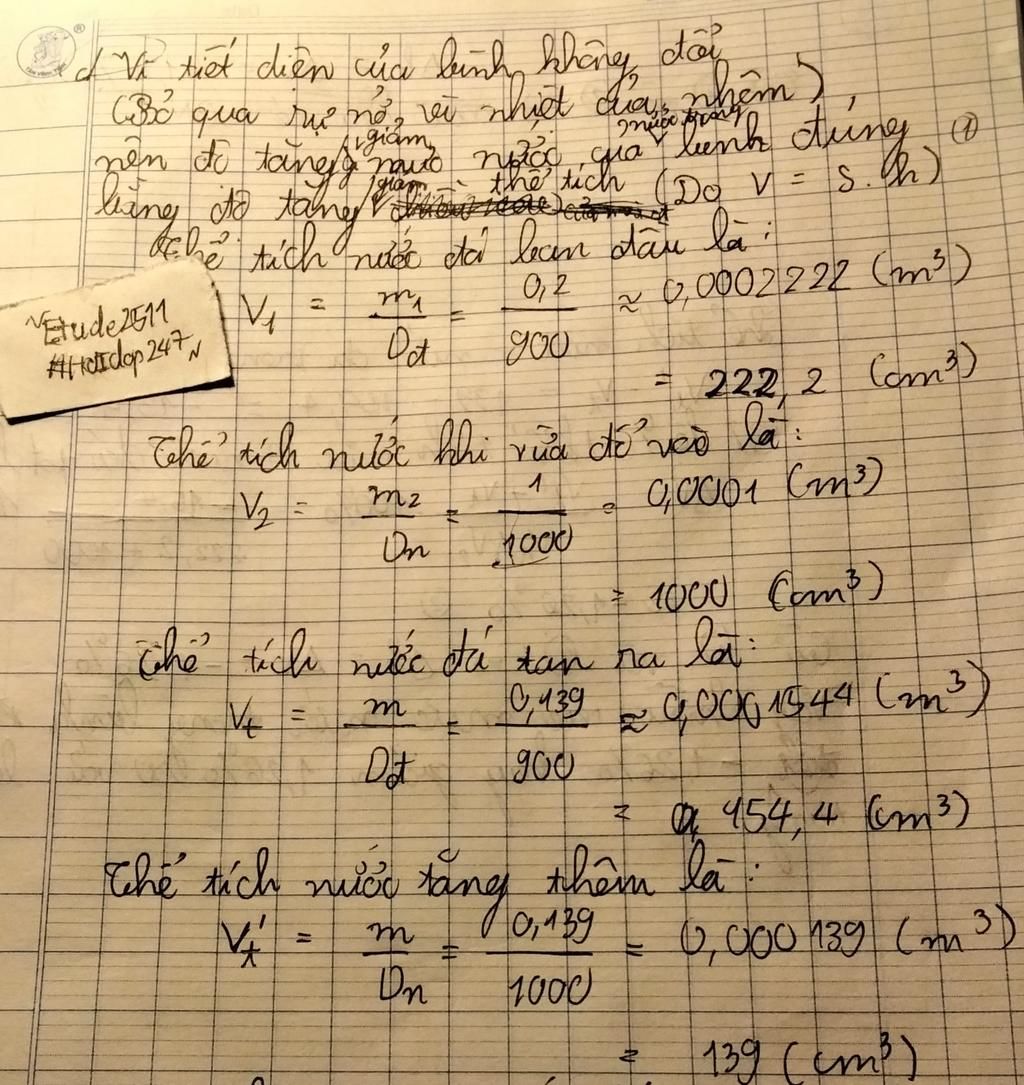 d Vì tiết diện của bình không đổi
(Bỏ qua sự nở vì nhiệt của nhôm),
nên độ tăng/giảm mực nước của nước trong bình đúng ①
bằng độ tăng/giảm thể tích (Do V = S.h)
Thể tích nước đá ban đầu là:
V₁ = m₁/Dđ = 0,2/900 ≈ 0,0002222 (m³)
= 222,2 (cm³)
~Etude2511
#Hoidap247~
Thể tích nước khi vừa đổ vào là:
V₂ = m₂/Dn = 1/1000 = 0,0001 (m³)
= 1000 (cm³)
Thể tích nước đá tan ra là:
Vt = m/Dđ = 0,139/900 ≈ 0,0001544 (m³)
= 154,4 (cm³)
Thể tích nước tăng thêm là:
Vt' = m/Dn = 0,139/1000 = 0,000139 (m³)
= 139 (cm³)